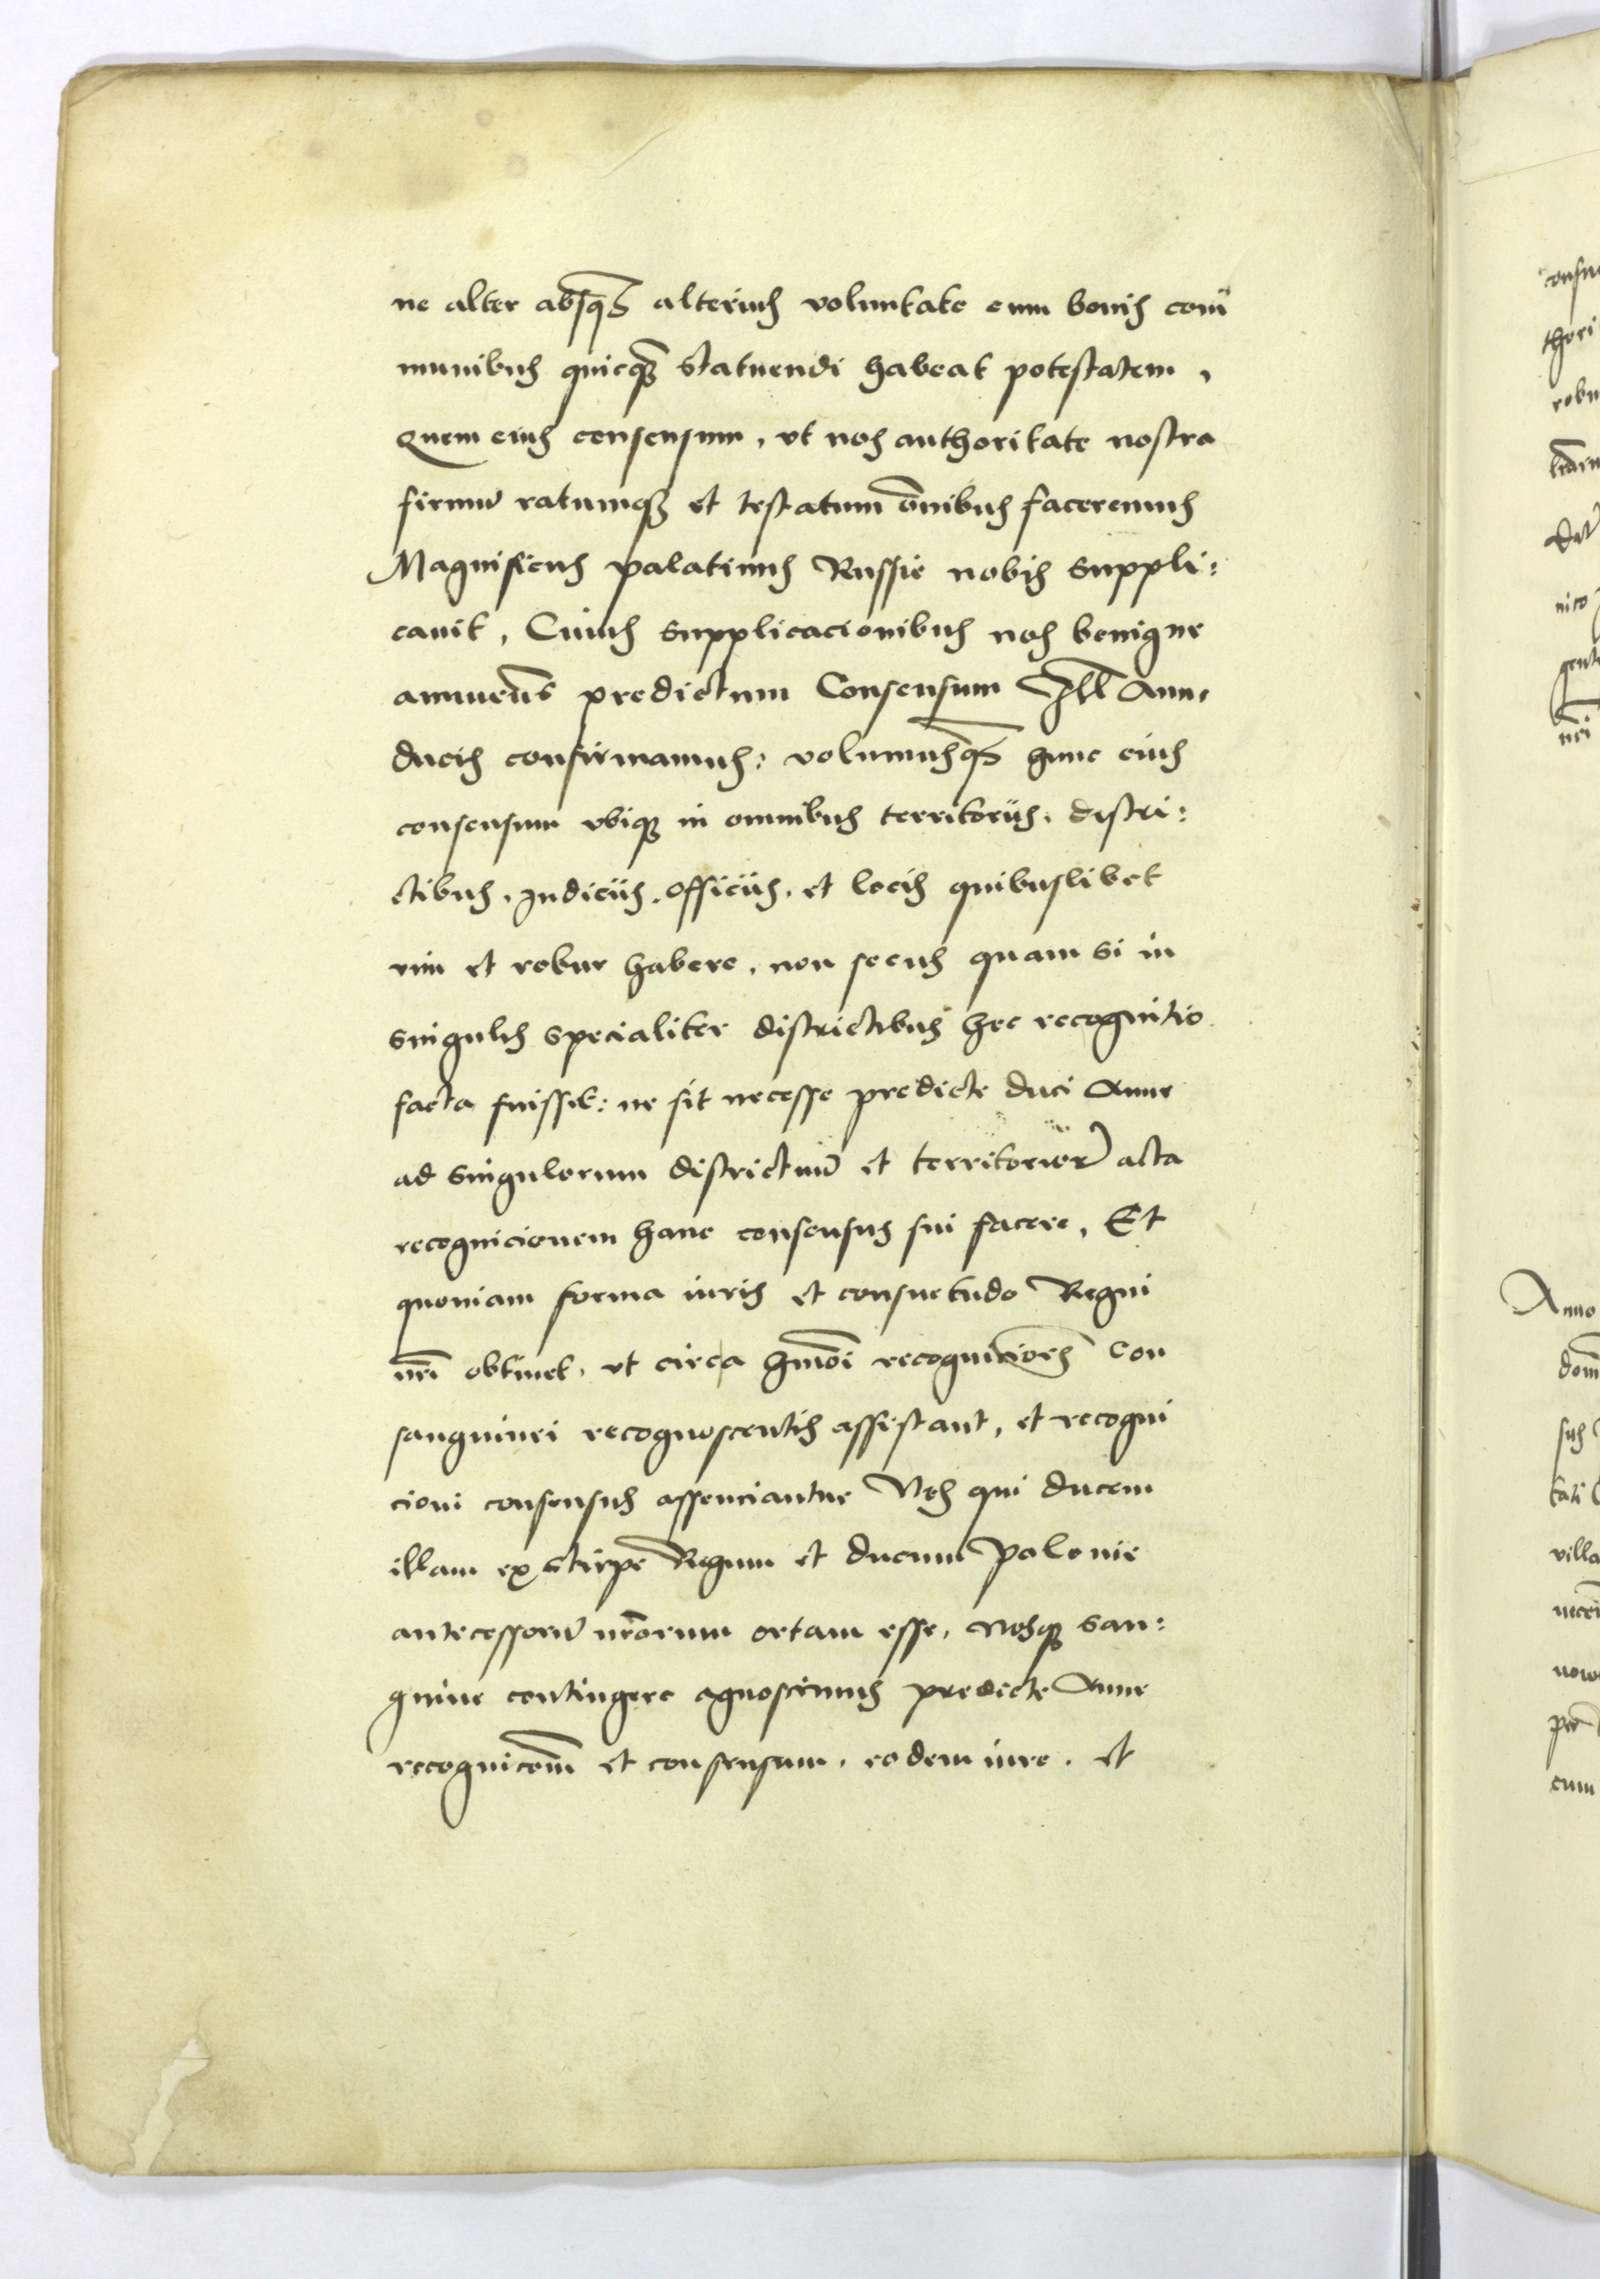 ne alter absq3 alterius voluntate cum bonis com̄
munibus quicq3 statuendi habeat potestatem,
Quem eius consensum, vt nos authoritate nostra
firmū ratumq3 et testatum ōnibus faceremus
Magnificus palatinus Russie nobis suppli:
cauit, Cuius supplicacionibus nos benigne
annuen̄s predictum Consensum Ill̄ Anne
ducis confirmamus: volumusq3 hunc eius
consensum vbiq3 in omnibus territoriis, distri:
ctibus, Judiciis, officiis, et locis quibuslibet
vim et robur habere, non secus quam si in
singulis specialiter districtibus hec recognitio
facta fuisset: ne sit necesse predicte duci Anne
ad singulorum districtuū et territorior̄ acta
recognicionem hanc consensus sui facere, Et
quoniam forma iuris et consuetudo Regni
nr̄i obtinet, vt circa hmōi recogniciōes Con
sanguinei recognoscentis assistant, et recogni
cioni consensus assenciantur Nos qui ducem
illam ex stirpe Regum et ducum Polonie
antecessorū nr̄orum ortam esse, Nosq3 san:
guine contingere agnoscimus predicte Anne
recognicōm̄ et consensum, eodem iure, et
Anno
villa
cum